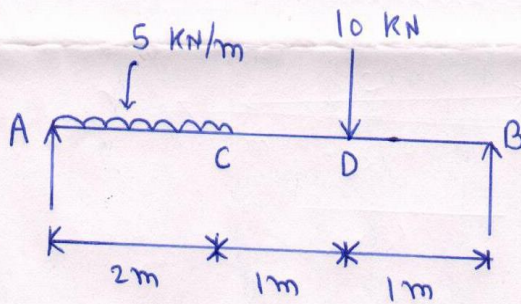 5 KN/m
10 KN
A
B
C
D
2m
1m
1m